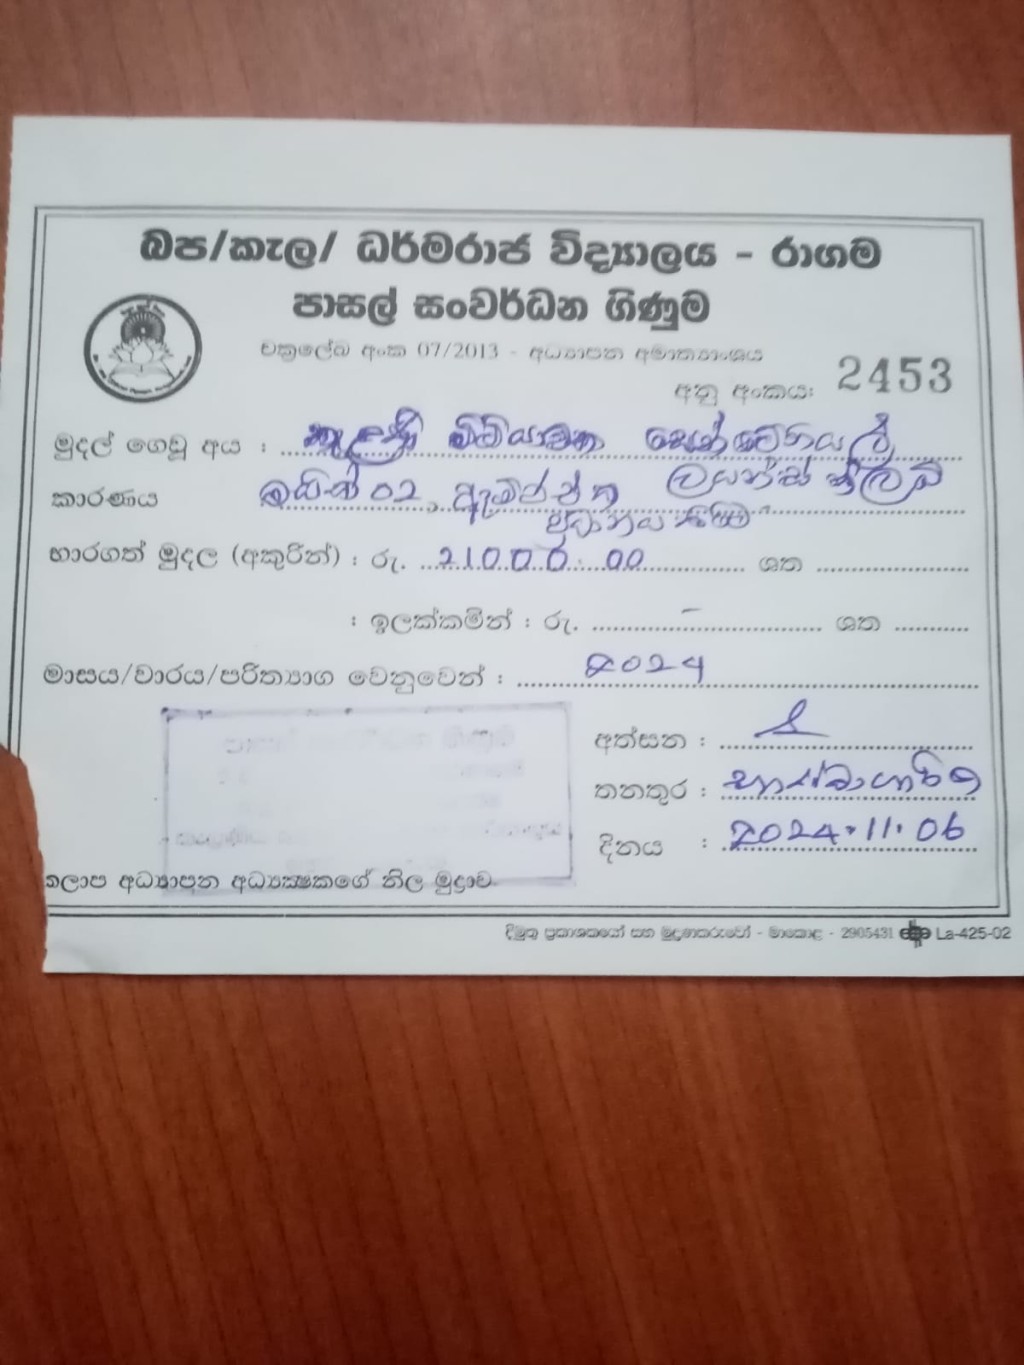 බප/කැල/ ධර්මරාජ විද්‍යාලය - රාගම
පාසල් සංවර්ධන ගිණුම
චක්‍රලේඛ අංක 07/2013 - අධ්‍යාපන අමාත්‍යාංශය
අනු අංකය: 2453
මුදල් ගෙවූ අය :
කාරණය 02, ලයන්ස් ක්ලබ්
ප්‍රධානය කිරීම
භාරගත් මුදල (අකුරින්) : රු. 21000.00 ශත
: ඉලක්කමින් : රු. – ශත
මාසය/වාරය/පරිත්‍යාග වෙනුවෙන් : 2024
අත්සන :
තනතුර : භාණ්ඩාගාරික
දිනය : 2024.11.06
කලාප අධ්‍යාපන අධ්‍යක්ෂකගේ නිල මුද්‍රාව
දිමුතු ප්‍රකාශකයෝ සහ මුද්‍රණකරුවෝ - මාකොළ - 2905431 La-425-02